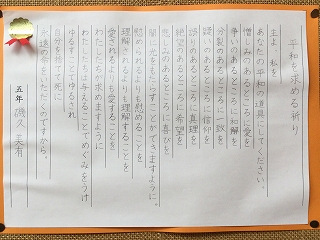 平和を求める祈り
主よ、私を
あなたの平和の道具にしてください。
憎しみのあるところに愛を
争いのあるところに和解を
分裂のあるところに一致を
疑いのあるところに信仰を
誤りのあるところに真理を
絶望のあるところに希望を
悲しみのあるところに喜びを
闇に光をもたらすことができますように。
慰められるよりも慰めることを
理解されるよりも理解することを
愛されるよりも愛することを
わたしたちが求めますように
わたしたちは与えることでめぐみをうけ
ゆるすことでゆるされ
自分を捨てて死に
永遠の命をいただくのですから。
五年 磯久 美有